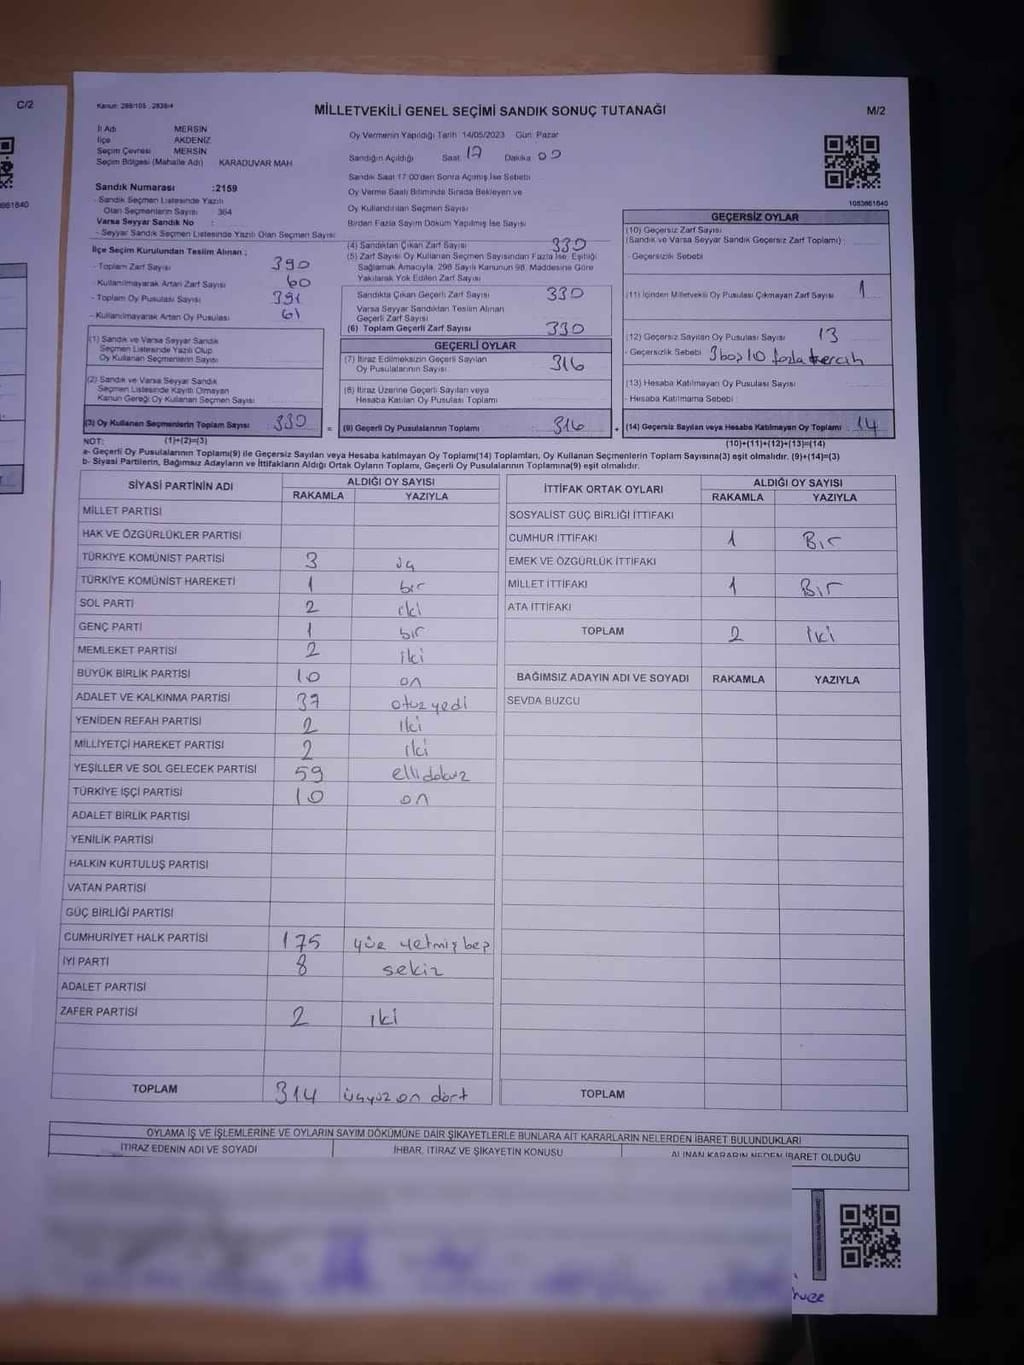 C/2
Kanun: 298/105 , 2839/4
MİLLETVEKİLİ GENEL SEÇİMİ SANDIK SONUÇ TUTANAĞI
M/2
İl Adı MERSİN
İlçe AKDENİZ
Seçim Çevresi MERSİN
Seçim Bölgesi (Mahalle Adı) KARADUVAR MAH
Oy Vermenin Yapıldığı Tarih 14/05/2023 Gün: Pazar
Sandığın Açıldığı Saat 17 Dakika 00
Sandık Saat 17:00'den Sonra Açılmış İse Sebebi
Oy Verme Saati Bitiminde Sırada Bekleyen ve
Oy Kullandırılan Seçmen Sayısı
Birden Fazla Sayım Döküm Yapılmış İse Sayısı
1083861640
Sandık Numarası :2159
- Sandık Seçmen Listesinde Yazılı
Olan Seçmenlerin Sayısı : 364
Varsa Seyyar Sandık No :
- Seyyar Sandık Seçmen Listesinde Yazılı Olan Seçmen Sayısı
İlçe Seçim Kurulundan Teslim Alınan ;
- Toplam Zarf Sayısı 390
- Kullanılmayarak Artan Zarf Sayısı 60
- Toplam Oy Pusulası Sayısı 391
- Kullanılmayarak Artan Oy Pusulası 61
(1) Sandık ve Varsa Seyyar Sandık
Seçmen Listesinde Yazılı Olup
Oy Kullanan Seçmenlerin Sayısı
(2) Sandık ve Varsa Seyyar Sandık
Seçmen Listesinde Kayıtlı Olmayan
Kanun Gereği Oy Kullanan Seçmen Sayısı
(3) Oy Kullanan Seçmenlerin Toplam Sayısı 330
(4) Sandıktan Çıkan Zarf Sayısı 330
(5) Zarf Sayısı Oy Kullanan Seçmen Sayısından Fazla İse, Eşitliği
Sağlamak Amacıyla, 298 Sayılı Kanunun 98. Maddesine Göre
Yakılarak Yok Edilen Zarf Sayısı
Sandıkta Çıkan Geçerli Zarf Sayısı 330
Varsa Seyyar Sandıktan Teslim Alınan
Geçerli Zarf Sayısı
(6) Toplam Geçerli Zarf Sayısı 330
GEÇERLİ OYLAR
(7) İtiraz Edilmeksizin Geçerli Sayılan
Oy Pusulalarının Sayısı 316
(8) İtiraz Üzerine Geçerli Sayılan veya
Hesaba Katılan Oy Pusulası Toplamı
= (9) Geçerli Oy Pusulalarının Toplamı 316
GEÇERSİZ OYLAR
(10) Geçersiz Zarf Sayısı
(Sandık ve Varsa Seyyar Sandık Geçersiz Zarf Toplamı) :
- Geçersizlik Sebebi
(11) İçinden Milletvekili Oy Pusulası Çıkmayan Zarf Sayısı 1
(12) Geçersiz Sayılan Oy Pusulası Sayısı 13
- Geçersizlik Sebebi 3boş 10 fazla tercih
(13) Hesaba Katılmayan Oy Pusulası Sayısı
- Hesaba Katılmama Sebebi
+ (14) Geçersiz Sayılan veya Hesaba Katılmayan Oy Toplamı 14
NOT: (1)+(2)=(3) (10)+(11)+(12)+(13)=(14)
a- Geçerli Oy Pusulalarının Toplamı(9) ile Geçersiz Sayılan veya Hesaba katılmayan Oy Toplamı(14) Toplamları, Oy Kullanan Seçmenlerin Toplam Sayısına(3) eşit olmalıdır. (9)+(14)=(3)
b- Siyasi Partilerin, Bağımsız Adayların ve İttifakların Aldığı Ortak Oyların Toplamı, Geçerli Oy Pusulalarının Toplamına(9) eşit olmalıdır.
SİYASİ PARTİNİN ADI ALDIĞI OY SAYISI
RAKAMLA YAZIYLA
MİLLET PARTİSİ
HAK VE ÖZGÜRLÜKLER PARTİSİ
TÜRKİYE KOMÜNİST PARTİSİ 3 üç
TÜRKİYE KOMÜNİST HAREKETİ 1 bir
SOL PARTİ 2 iki
GENÇ PARTİ 1 bir
MEMLEKET PARTİSİ 2 iki
BÜYÜK BİRLİK PARTİSİ 10 on
ADALET VE KALKINMA PARTİSİ 37 otuz yedi
YENİDEN REFAH PARTİSİ 2 iki
MİLLİYETÇİ HAREKET PARTİSİ 2 iki
YEŞİLLER VE SOL GELECEK PARTİSİ 59 elli dokuz
TÜRKİYE İŞÇİ PARTİSİ 10 on
ADALET BİRLİK PARTİSİ
YENİLİK PARTİSİ
HALKIN KURTULUŞ PARTİSİ
VATAN PARTİSİ
GÜÇ BİRLİĞİ PARTİSİ
CUMHURİYET HALK PARTİSİ 175 yüz yetmiş beş
İYİ PARTİ 8 sekiz
ADALET PARTİSİ
ZAFER PARTİSİ 2 iki
TOPLAM 314 üçyüz on dört
İTTİFAK ORTAK OYLARI ALDIĞI OY SAYISI
RAKAMLA YAZIYLA
SOSYALİST GÜÇ BİRLİĞİ İTTİFAKI
CUMHUR İTTİFAKI 1 Bir
EMEK VE ÖZGÜRLÜK İTTİFAKI
MİLLET İTTİFAKI 1 Bir
ATA İTTİFAKI
TOPLAM 2 iki
BAĞIMSIZ ADAYIN ADI VE SOYADI RAKAMLA YAZIYLA
SEVDA BUZCU
TOPLAM
OYLAMA İŞ VE İŞLEMLERİNE VE OYLARIN SAYIM DÖKÜMÜNE DAİR ŞİKAYETLERLE BUNLARA AİT KARARLARIN NELERDEN İBARET BULUNDUKLARI
İTİRAZ EDENİN ADI VE SOYADI İHBAR, İTİRAZ VE ŞİKAYETİN KONUSU ALINAN KARARIN NEDEN İBARET OLDUĞU